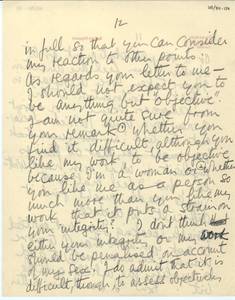 12
in full, so that you can consider
my reaction to other points.
As regards your letter to me —
I should not expect you to
be anything but objective.
I am not quite sure from
your remark ① whether you
find it difficult, although you
like my work, to be objective
because I'm a woman or ② whether
you like me as a person so
much more than you like my
work that it puts a strain on
your integrity? I don't think
either your integrity or my
should be penalised on account
of my sex. I do admit that it is
difficult, though, to assess objectively